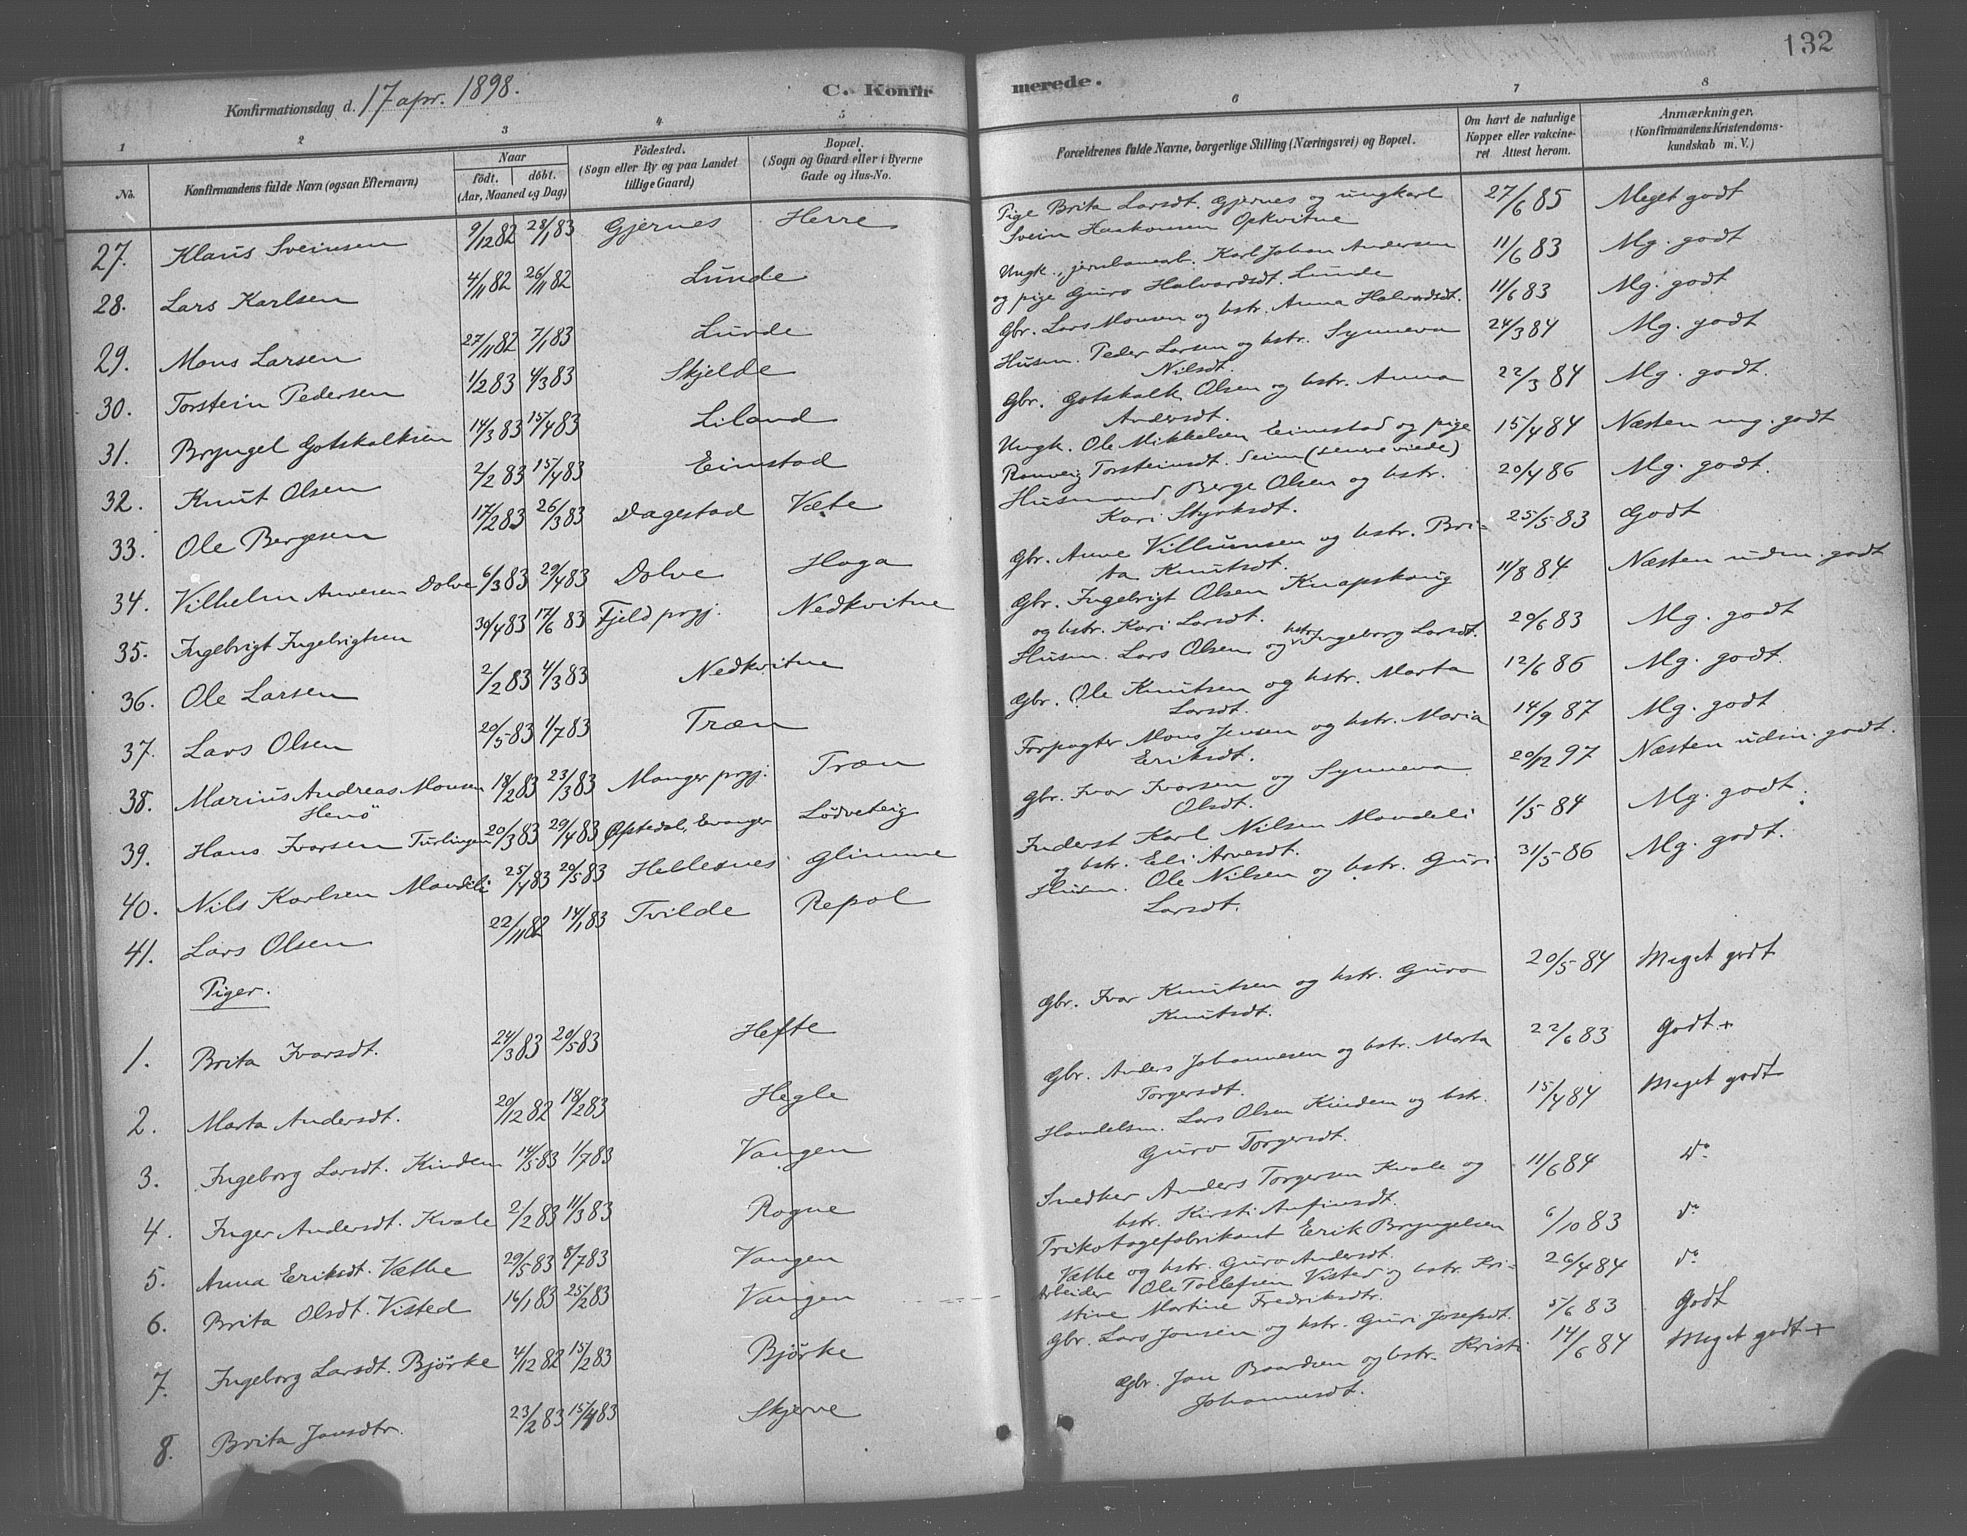 132
Konfirmationsdag d. 17 apr. 1898.
C. Konfir
merede.
1 2 3 4 5 6 7 8
No.
Konfirmandens fulde Navn (ogsaa Efternavn)
Naar
født. døbt.
(Aar, Maaned og Dag)
Födested.
(Sogn eller By og paa Landet
tillige Gaard)
Bopæl.
(Sogn og Gaard eller i Byerne
Gade og Hus-No.
Forældrenes fulde Navne, borgerlige Stilling (Næringsvei) og Bopæl.
Om havt de naturlige
Kopper eller vakcine-
ret Attest herom.
Anmærkninger.
(Konfirmandens Kristendoms-
kundskab m. V.)
27. Klaus Sveinsen 9/12 82 28/1 83 Gjernes Herre Pige Brita Larsdt. Gjernes og ungkarl 27/6 85 Meget godt
Svein Haakonsen Opkvitne
28. Lars Karlsen 4/11 82 26/11 82 Lunde Ungk., jernbanearb. Karl Johan Andersen 11/6 83 Mg. godt
og pige Guro Halvardsdt. Lunde
29. Mons Larsen 27/11 82 7/1 83 Lunde Gbr. Lars Monsen og hstr. Anna Halvardsdt. 11/6 83 Mg. godt
30. Torstein Pedersen 1/2 83 4/3 83 Skjelde Husm. Peder Larsen og hstr. Synneva 24/3 84 Mg. godt
Nilsdt.
31. Bryngel Gotskalksen 14/3 83 15/4 83 Liland Gbr. Gotskalk Olsen og hstr. Anna 22/3 84 Mg. godt.
Andersdt.
32. Knut Olsen 2/2 83 15/4 83 Eimstad Ungk. Ole Mikkelsen Eimstad og pige 15/4 84 Næsten mg. godt
Ranveig Torsteinsdt. Seim (senere viede)
33. Ole Bergesen 17/2 83 26/3 83 Dagestad Væte Husmand Berge Olsen og hstr. 20/4 86 Mg. godt.
Kari Styrksdt.
34. Vilhelm Arnesen Dolve 6/3 83 29/4 83 Dolve Haga Gbr. Arne Villumsen og hstr. Bri- 25/5 83 Godt
ta Knutsdt.
35. Ingebrigt Ingebrigtsen 30/4 83 17/6 83 Fjeld prgj. Nedkvitne Gbr. Ingebrigt Olsen Knapskong 11/8 84 Næsten udm. godt
og hstr. Kari Larsdt.
36. Ole Larsen 2/2 83 4/3 83 Nedkvitne Husm. Lars Olsen og hstr. Ingeborg Larsdt. 20/6 83 Mg. godt
37. Lars Olsen 20/5 83 1/7 83 Træn Gbr. Ole Knutsen og hstr. Marta 12/6 86 Mg. godt.
Larsdt.
38. Marius Andreas Monsen 18/2 83 23/3 83 Manger prgj. Træn Forpagter Mons Jensen og hstr. Maria 14/9 87 Mg. godt
Henö
Eriksdt.
39. Hans Ivarsen Turlingen 20/3 83 29/4 83 Opstedal, Evanger Lödveteig Gbr. Ivar Ivarsen og Synneva 20/12 97 Næsten udm. godt.
Olsdt.
40. Nils Karlsen Mandeli 25/4 83 20/5 83 Hellesnes Glimme Inderst Karl Nilsen Mandeli 1/5 84 Mg. godt.
og hstr. Eli Arnesdt.
41. Lars Olsen 22/11 82 14/1 83 Tvilde Repal Husm. Ole Nilsen og hstr. Guri 31/5 86 Mg. godt.
Larsdt.
Piger.
1. Brita Ivarsdt. 24/3 83 20/5 83 Hefte Gbr. Ivar Knutsen og hstr. Guro 20/5 84 Meget godt
Knutsdt.
2. Marta Andersdt. 20/12 82 18/2 83 Hegle Gbr. Anders Johannesen og hstr. Marta 22/6 83 Godt +
Torgersdt.
3. Ingeborg Larsdt. Kindem 14/5 83 1/7 83 Vangen Handelsm. Lars Olsen Kindem og hstr. 15/4 84 Meget godt
Guro Torgersdt.
4. Inger Andersdt. Kvale 2/2 83 11/3 83 Rogne Snedker Anders Torgersen Kvale og 11/6 84 do
hstr. Kirsti Anfinsdt.
5. Anna Eriksdt. Væthe 29/5 83 8/7 83 Vangen Trikotagefabrikant Erik Bryngelsen 6/10 83 do
Væthe og hstr. Guro Andersdt.
6. Brita Olsdt. Visted 16/1 83 25/2 83 Vangen Arbeider Ole Tollefsen Visted og hstr. Kri- 26/4 84 do
stine Martine Fredriksdtr.
7. Ingeborg Larsdt. Bjørke 4/12 82 15/2 83 Bjørke Gbr. Lars Jonsen og hstr. Guri Josefsdt. 5/6 83 Godt
8. Brita Jansdtr. 23/2 83 15/4 83 Skjerve Gbr. Jan Baardsen og hstr. Kristi 14/6 84 Meget godt +
Johannesdt.